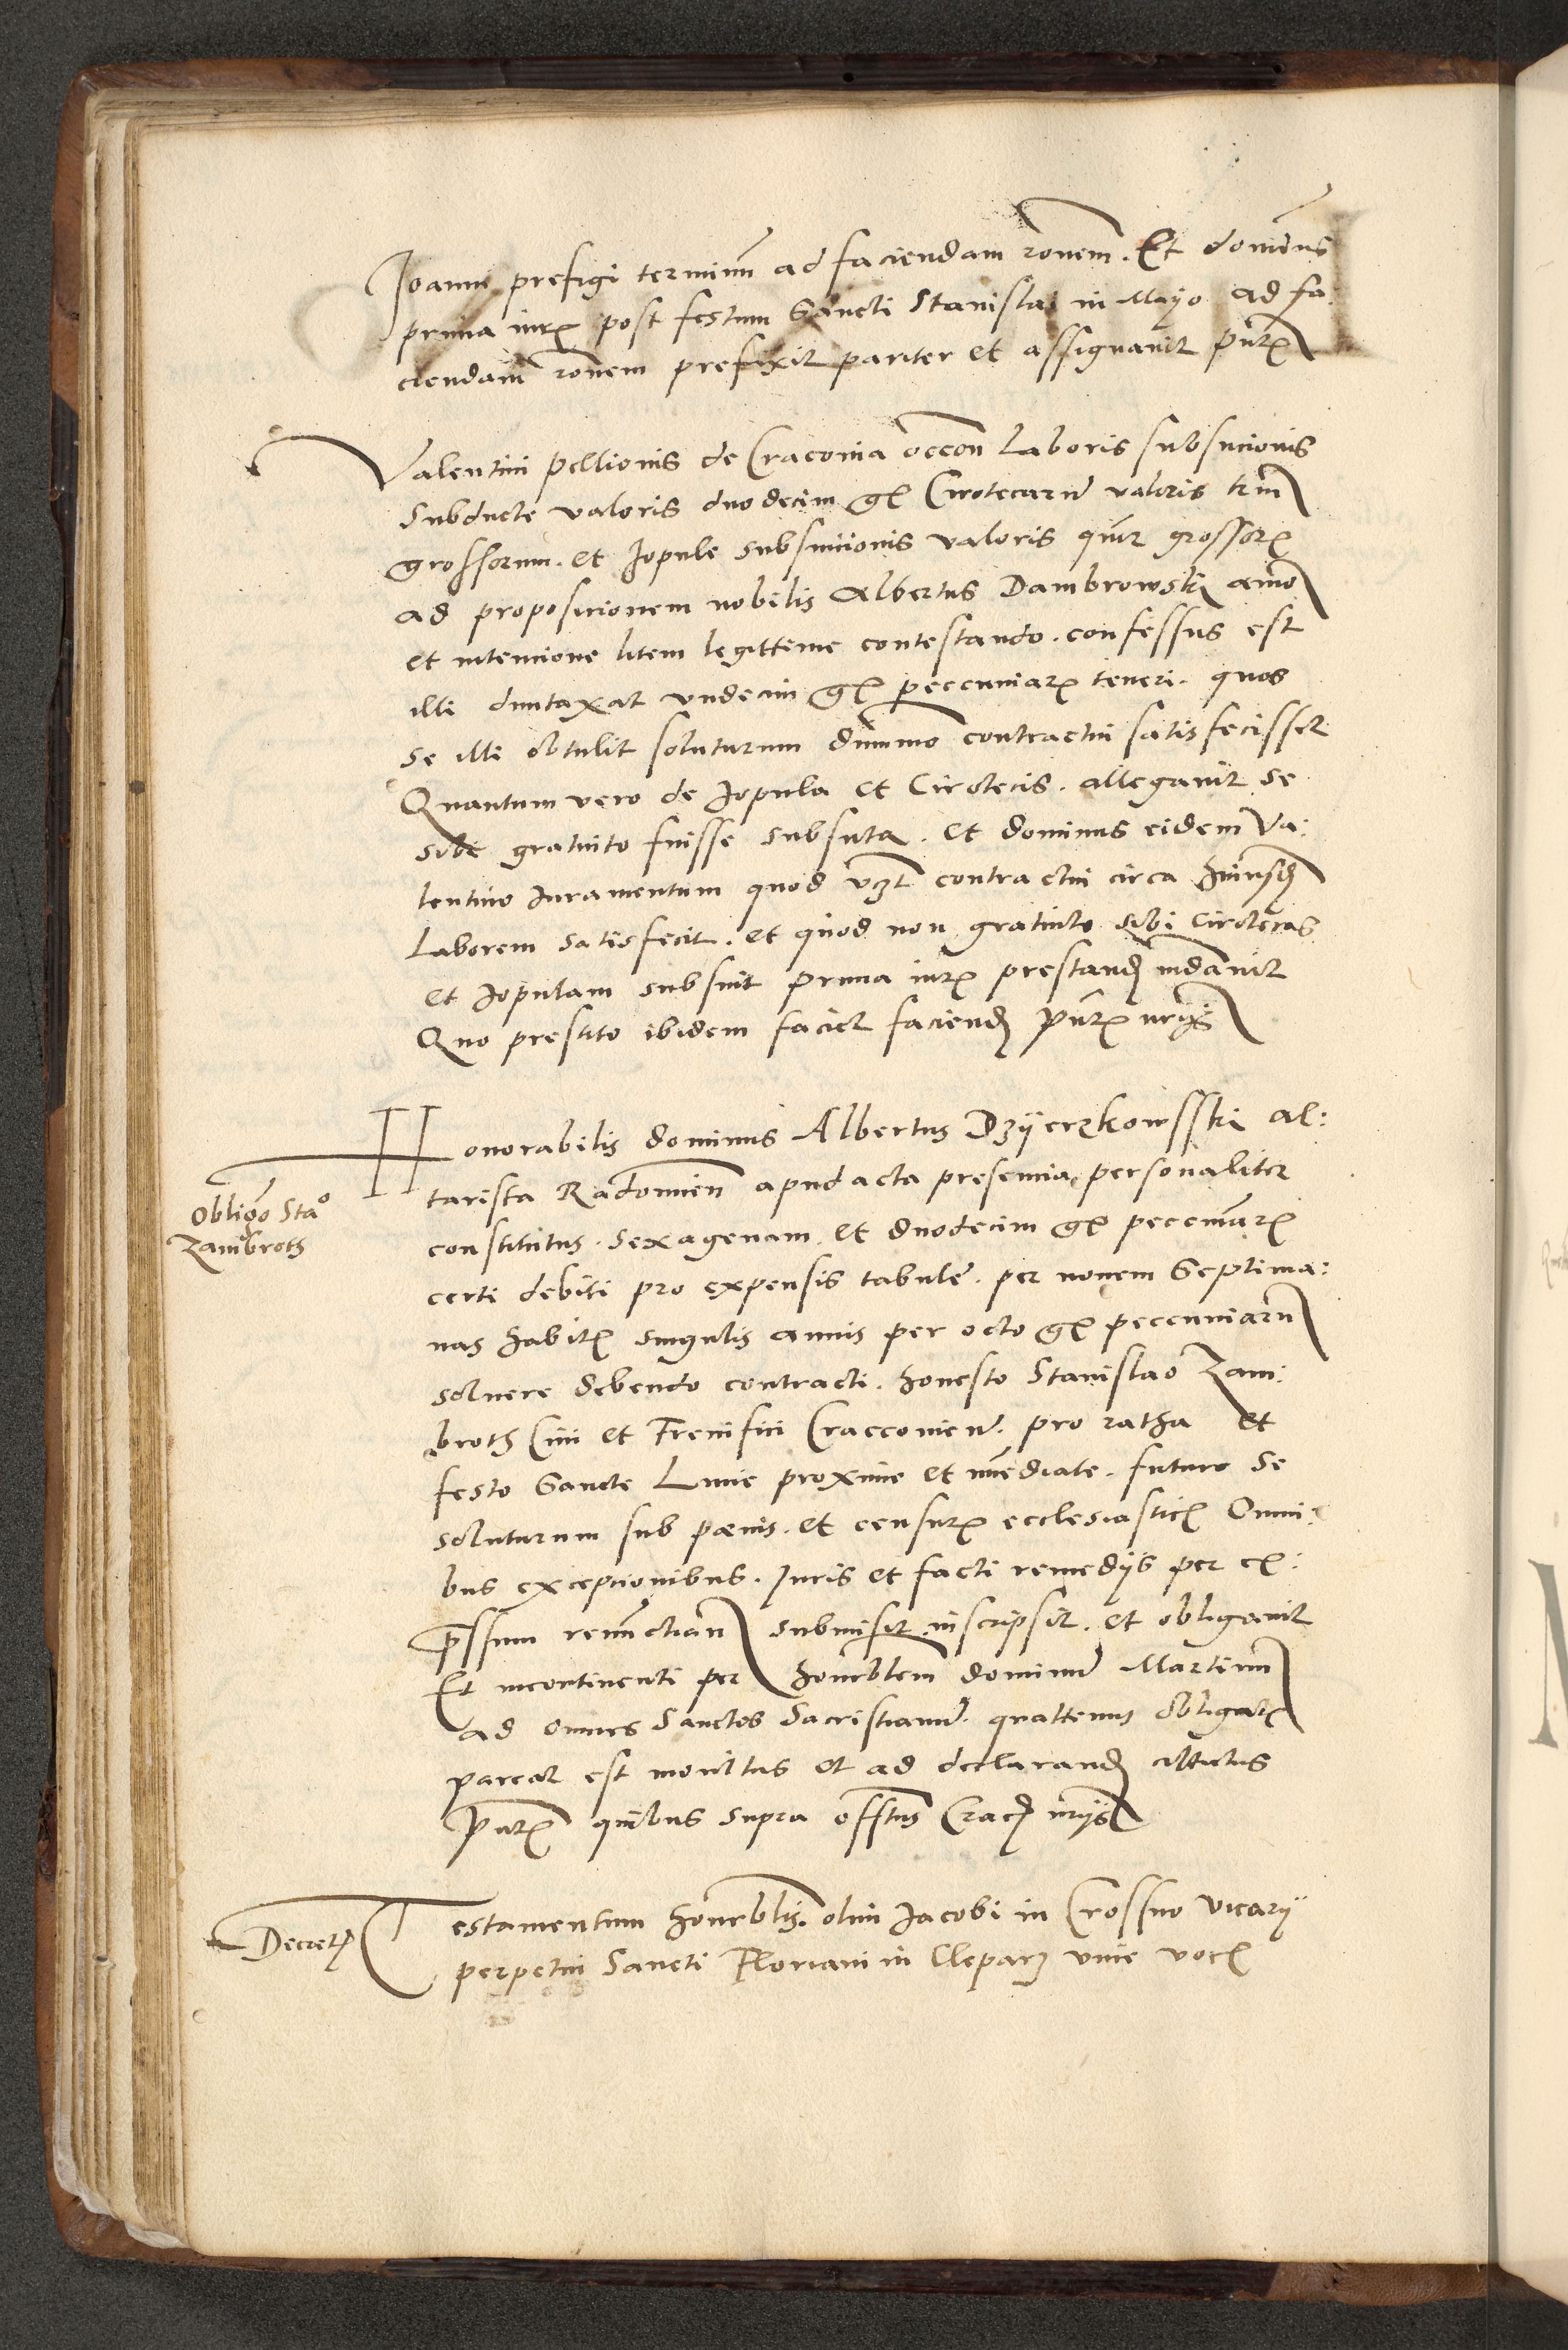 Joanni prefigi terminũ ad faciendam rõnem. Et dominus
prima iurꝭ post festum Sancti Stanislai in Mayo ad fa:
ciendam rõnem prefixit pariter et assignauit pñtꝭ
Valentini pellionis de Cracouia occõn laboris subsucionis
subducte valoris duodecim gꝭ Cirotecarũ valoris triũ
grossorum. et Jopule subsucionis valoris grossorꝭ
ad proposicionem nobilis Albertus Dambrowski aĩo
et intencione litem legittime contestando. confessus est
illi duntaxat vndecim gꝭ peccuniarꝭ teneri. quos
se illi obtulit soluturum dummo contractui satisfecisset
Quantum vero de Jopula et Cirotecis. allegauit se
sibi gratuito fuisse subsuta. et dominus eidem Va:
lentino Juramentum quod vꝫt contractui circa huiusᵈ
Laborem satisfecit. et quod non gratuito sibi Cirotecas
et Jopulam subsuit prima iurꝭ prestandᷣ indauit
Quo prestito ibidem faciet faciendᷣ pñtꝭ
Honorabilis dominus Albertus Dzÿerzkowsski al:
tarista Radomieñ apud acta presencia personaliter
constitutus. sexagenam et duodecim gꝭ peccuniarꝭ
certi debiti pro expensis tabule. per nouem Septima:
nas habitꝭ singulis annis per octo gꝭ peccuniarũ
soluere debendo contracti. honesto Stanislao Zam:
broth Ciui et Frenifici Craccouieñ. pro ratha et
festo Sancte Lucie proxime et immediate. futuro se
soluturum sub penis. et censurꝭ ecclesiasticꝭ Omni:
bus exceptionibus. Juris et facti remedijs per ex:
pressum renũctiatũ submisit inscripsit. et obligauit
Et incontinenti per honorblem dominũ Martinũ
ad omnes Sanctos Sacristianũ. quattenus obligatꝭ
pareat est monitus et ad declarandᷣ citatus
pñtꝭ quibus supra
Testamentum honorblis. olim Jacobi in Crossno vicarij
perpetui Sancti Floriani in Cleparꝫ vnie vocꝭ
Obligõ Staº
Zambroth
Decretꝭ